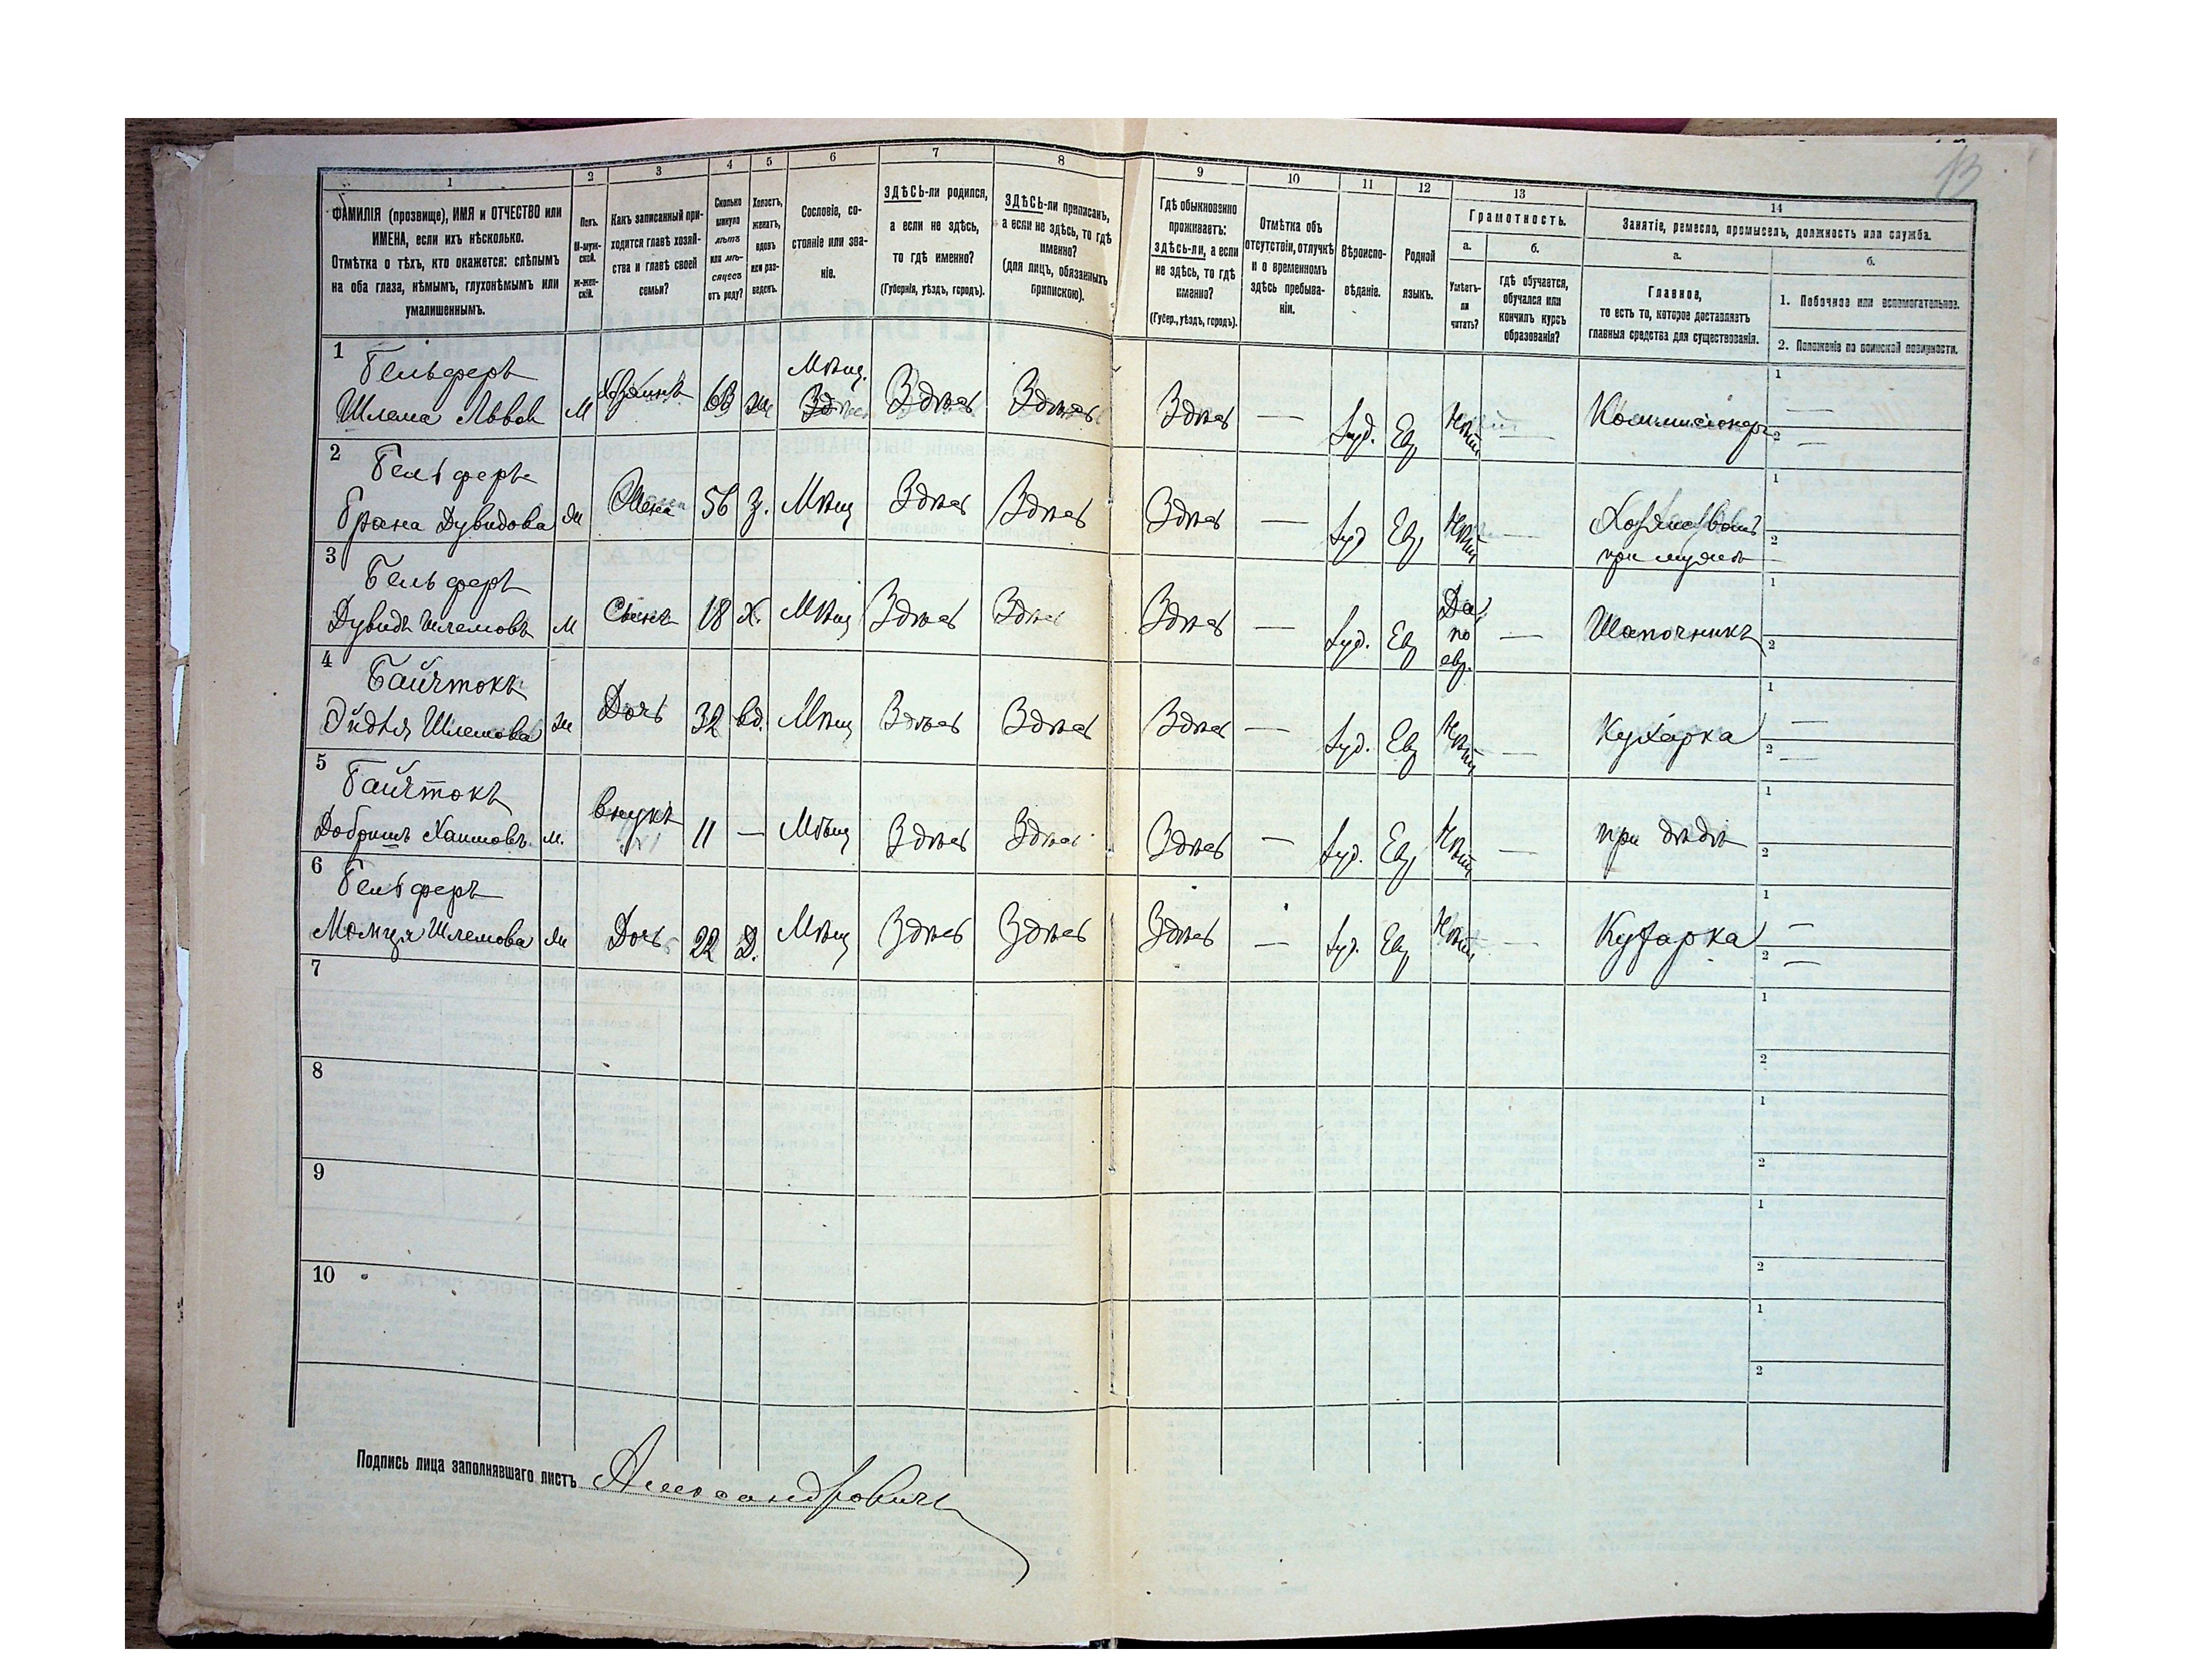 13
1 2 3 4 5 6 7 8 9 10 11 12 13 14
ФАМИЛІЯ (прозвище), ИМЯ и ОТЧЕСТВО или
ИМЕНА, если ихъ нѣсколько.
Отмѣтка о тѣхъ, кто окажется: слѣпымъ
на оба глаза, нѣмымъ, глухонѣмымъ или
умалишеннымъ.
Полъ.
М-муж-
ской.
Ж-жен-
скій.
Какъ записанный при-
ходится главѣ хозяй-
ства и главѣ своей
семьи?
Сколько
минуло
лѣтъ
или мѣ-
сяцевъ
отъ роду?
Холостъ,
женатъ,
вдовъ
или раз-
веденъ.
Сословіе, со-
стояніе или зва-
ніе.
ЗДѢСЬ-ли родился,
а если не здѣсь,
то гдѣ именно?
(Губернія, уѣздъ, городъ).
ЗДѢСЬ-ли приписанъ,
а если не здѣсь, то гдѣ
именно?
(для лицъ, обязанныхъ
припискою).
Гдѣ обыкновенно
проживаетъ:
здѣсь-ли, а если
не здѣсь, то гдѣ
именно?
(Губер., уѣздъ, городъ).
Отмѣтка объ
отсутствіи, отлучкѣ
и о временномъ
здѣсь пребыва-
ніи.
Вѣроиспо-
вѣданіе.
Родной
языкъ.
Грамотность.
а. б.
Умѣетъ-
ли
читать?
гдѣ обучается,
обучался или
кончилъ курсъ
образованія?
Занятіе, ремесло, промыселъ, должность или служба.
а. б.
Главное,
то есть то, которое доставляетъ
главныя средства для существованія.
1. Побочное или вспомогательное.
2. Положеніе по воинской повинности.
1 Гельферъ Мѣщ. 1
Шлема Львов М Хозяинъ 63 Здѣсь Здѣсь Здѣсь — Іуд. Ев. Нѣтъ — Коммисіонеръ 2
2 Гельферъ 1
Брана Дувидова Жена 56 З. Мѣщ Здѣсь Здѣсь Здѣсь — Іуд Ев. Нѣтъ — Хозяйствомъ 2
при мужѣ
3 Гельферъ 1
Дувидъ Шлемовъ М Сынъ 18 Х. Мѣщ Здѣсь Здѣсь Здѣсь — Іуд. Ев Да, по евр. — Шапочникъ 2
4 Байчтокъ 1
Эйдля Шлемова Ж Дочь 32 вд. Мѣщ Здѣсь Здѣсь Здѣсь — Іуд. Ев Нѣтъ — Кухарка 2
5 Байчтокъ 1
Добришъ Хаимовъ М. внукъ 11 — Мѣщ Здѣсь Здѣсь Здѣсь — Іуд. Ев. Нѣтъ — при дѣдѣ 2
6 Гельферъ 1
Шлемова Ж Дочь 22 Д. Мѣщ Здѣсь Здѣсь Здѣсь — Іуд. Ев Нѣтъ — Кухарка 2
7 1
2
8 1
2
9 1
2
10 1
2
Подпись лица заполнявшаго листъ Александровичъ